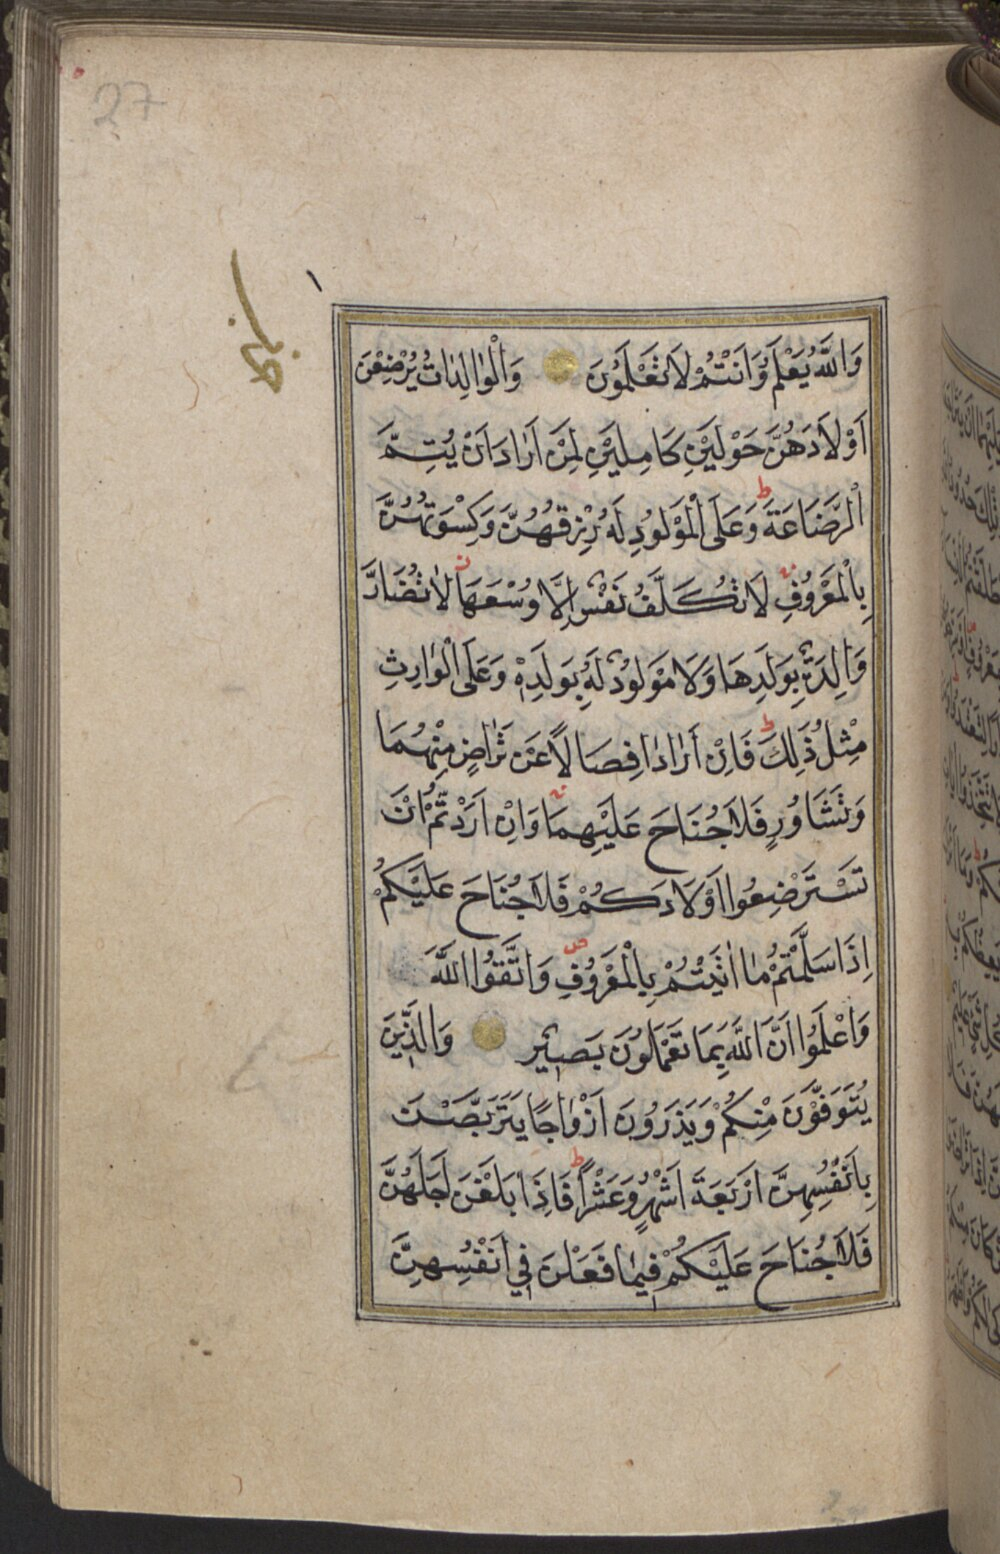 27
وَاللَّهُ يَعْلَمُ وَاَنْتُمْ لَا تَعْلَمُونَ وَالْوَالِدَاتُ يُرْضِعْنَ
اَوْلَادَهُنَّ حَوْلَيْنِ كَامِلَيْنِ لِمَنْ اَرَادَ اَنْ يُتِمَّ
الرَّضَاعَةَ ط وَعَلَى الْمَوْلُودِ لَهُ رِزْقُهُنَّ وَكِسْوَتُهُنَّ
بِالْمَعْرُوفِ لَا تُكَلَّفُ نَفْسٌ اِلَّا وُسْعَهَا لَا تُضَارَّ
وَالِدَةٌ بِوَلَدِهَا وَلَا مَوْلُودٌ لَهُ بِوَلَدِهِ وَعَلَى الْوَارِثِ
مِثْلُ ذَلِكَ ط فَاِنْ اَرَادَا فِصَالًا عَنْ تَرَاضٍ مِنْهُمَا
وَتَشَاوُرٍ فَلَا جُنَاحَ عَلَيْهِمَا وَاِنْ اَرَدْتُمْ اَنْ
تَسْتَرْضِعُوا اَوْلَادَكُمْ فَلَا جُنَاحَ عَلَيْكُمْ
اِذَا سَلَّمْتُمْ مَا اٰتَيْتُمْ بِالْمَعْرُوفِ وَاتَّقُوا اللَّهَ
وَاعْلَمُوا اَنَّ اللَّهَ بِمَا تَعْمَلُونَ بَصِيرٌ وَالَّذِينَ
يُتَوَفَّوْنَ مِنْكُمْ وَيَذَرُونَ اَزْوَاجًا يَتَرَبَّصْنَ
بِاَنْفُسِهِنَّ اَرْبَعَةَ اَشْهُرٍ وَعَشْرًا ط فَاِذَا بَلَغْنَ اَجَلَهُنَّ
فَلَا جُنَاحَ عَلَيْكُمْ فِيمَا فَعَلْنَ فِي اَنْفُسِهِنَّ